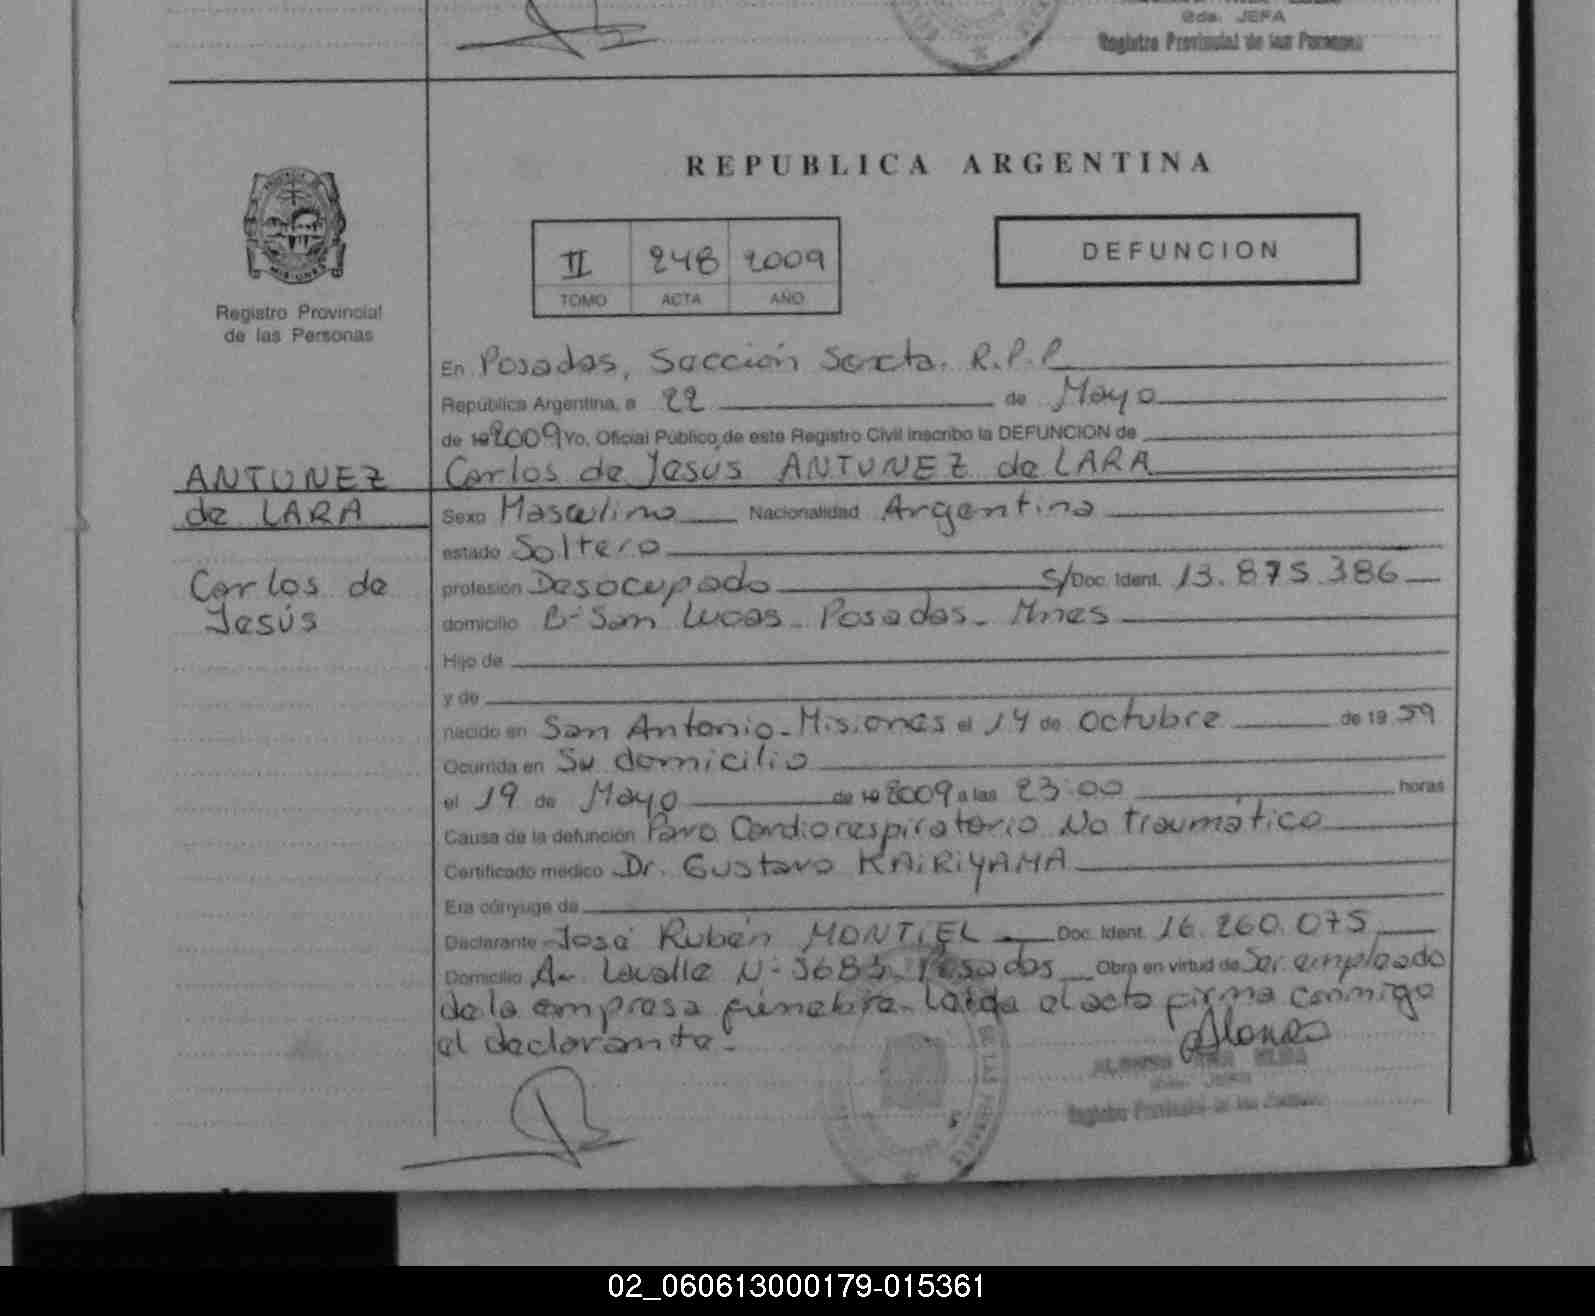 2da. JEFA
Registro Provincial de las Personas
REPUBLICA ARGENTINA
MISIONES
Registro Provincial
de las Personas
II 248 2009
TOMO ACTA AÑO
DEFUNCION
En Posadas, Sección Sexta. R.P.P
República Argentina, a 22 de Mayo
de 19 2009 Yo, Oficial Público de este Registro Civil inscribo la DEFUNCION de
Carlos de Jesús ANTUNEZ de LARA
ANTUNEZ
de LARA
Carlos de
Jesús
Sexo Masculino Nacionalidad Argentina
estado Soltero
profesión Desocupado S/Doc. Ident. 13.875.386
domicilio B- San Lucas - Posadas - Mnes
Hijo de
y de
nacido en San Antonio - Misiones el 14 de Octubre de 19 59
Ocurrida en Su domicilio
el 19 de Mayo de 19 2009 a las 23:00 horas
Causa de la defunción Paro Cardiorespiratorio No traumático
Certificado médico Dr. Gustavo KAIRIYAMA
Era cónyuge de
Declarante José Rubén MONTIEL Doc. Ident. 16.260.075
Domicilio Av. Lavalle N- Posadas Obra en virtud de Ser empleado
de la empresa fúnebre. Leída el acta firma conmigo
el declarante.
Alonso
ALONSO
Registro Provincial de las Personas
02_060613000179-015361